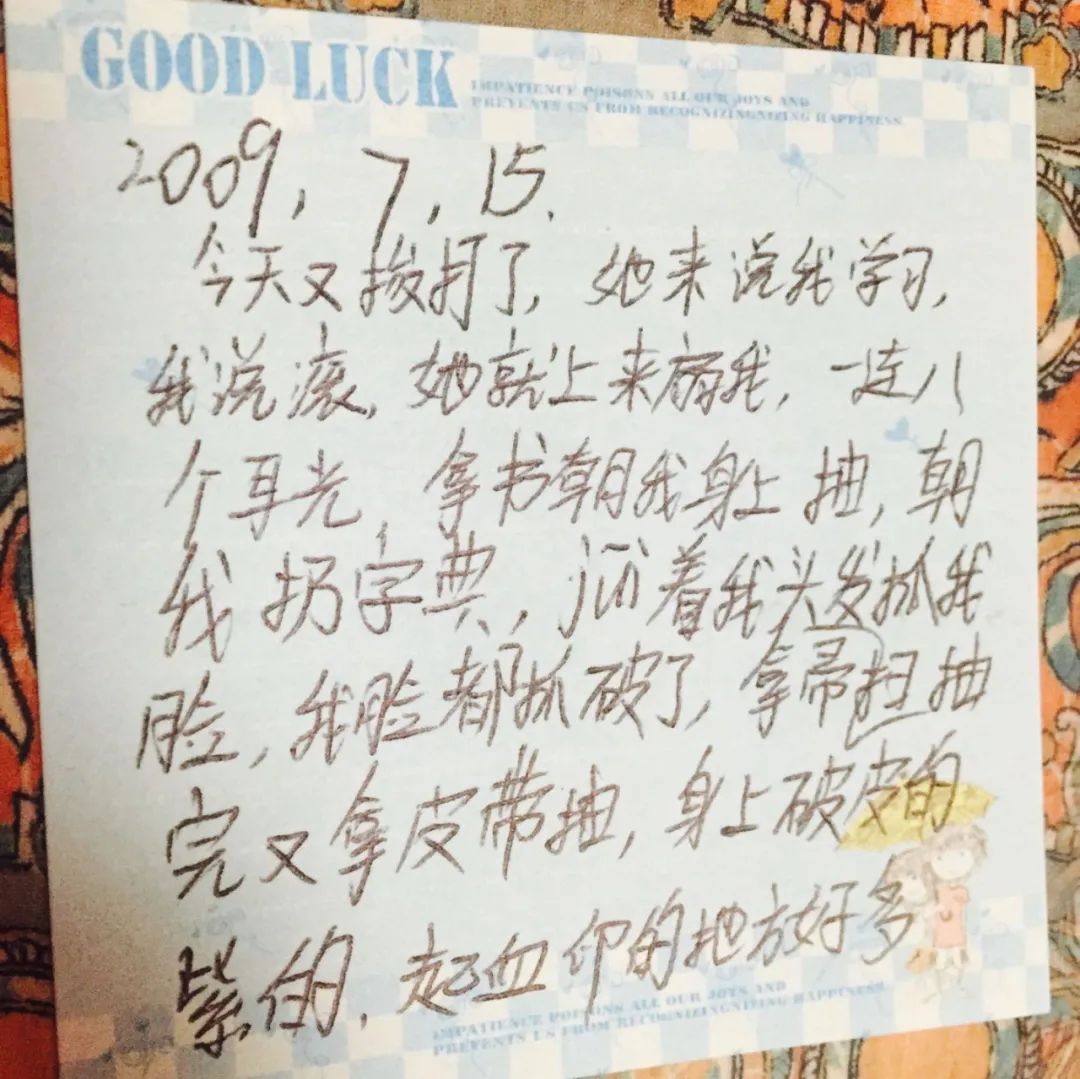 GOOD LUCK
IMPATIENCE POISONS ALL OUR JOYS AND
PREVENTS US FROM RECOGNIZINGNIZING HAPPINESS.
2009，7，15.
今天又挨打了，她来说我学习，
我说滚，她就上来扇我，一连八
个耳光，拿书朝我身上抽，朝
我扔字典，着我头发抓我
脸，我脸都抓破了，拿帚扫抽
完又拿皮带抽，身上破皮的
紫的，起血印的地方好多
IMPATIENCE POISONS ALL OUR JOYS AND
PREVENTS US FROM RECOGNIZINGNIZING HAPPINESS.